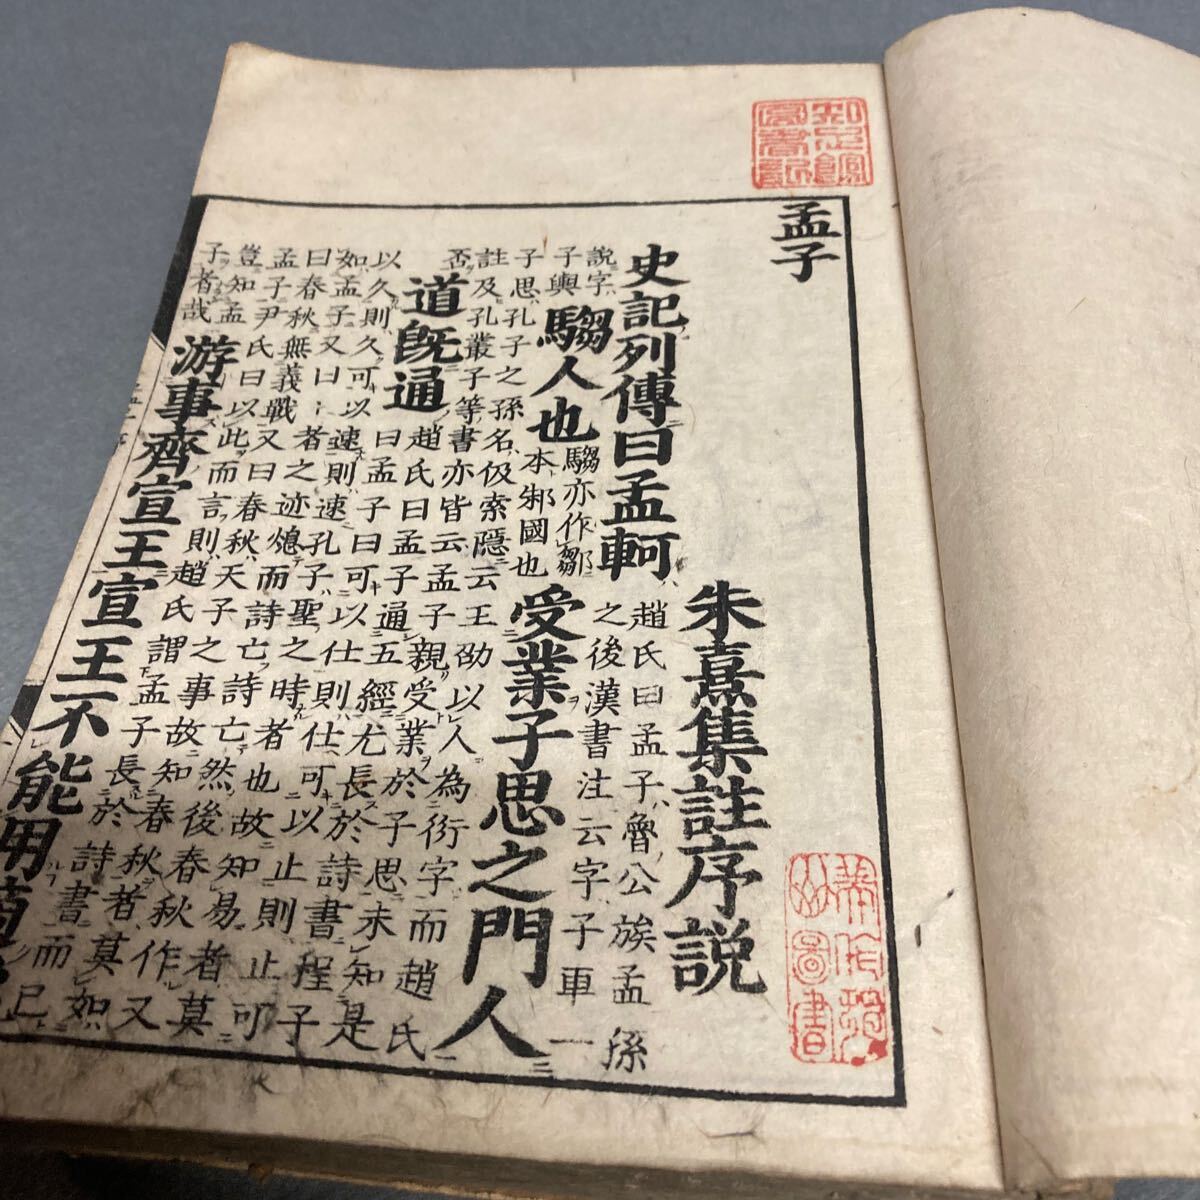 孟子
朱熹集註序說
史記列傳曰孟軻
趙氏曰孟子魯公族孟孫
之後漢書注云字子車一
說字
子輿
騶人也
騶亦作鄒
本邾國也
受業子思之門人
子思孔子之孫名伋索隱云王劭以人為衍字而趙氏
註及孔叢子等書亦皆云孟子親受業於子思未知是
否
道既通
趙氏曰孟子通五經尤長於詩書程子
曰孟子曰可以仕則仕可以止則止可
以久則久可以速則速孔子聖之時者也故知易者莫
如孟子又曰王者之迹熄而詩亡詩亡然後春秋作又
曰春秋無義戰又曰春秋天子之事故知春秋者莫如
孟子尹氏曰以此而言則趙氏謂孟子長於詩書而已
豈知孟
子者哉
游事齊宣王宣王不能用適